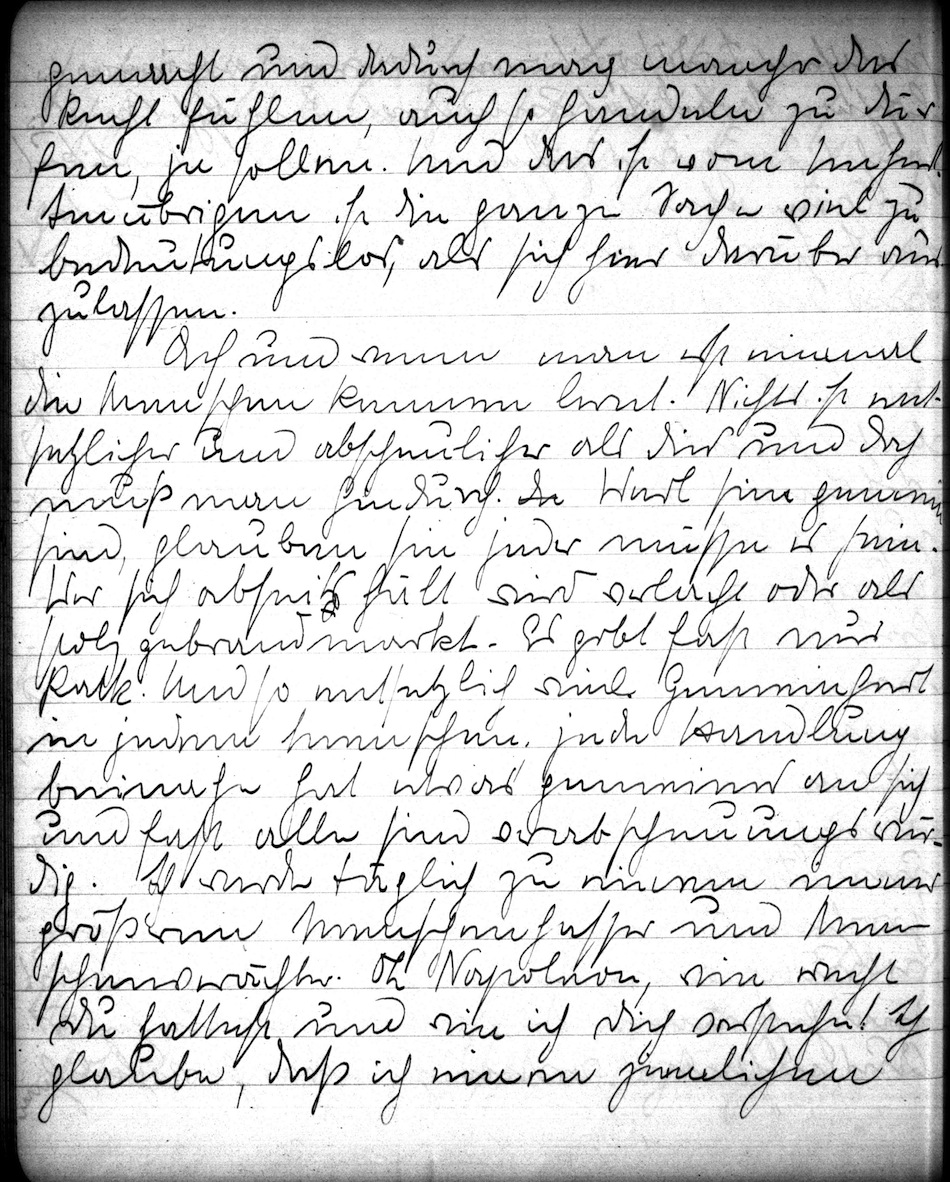 gemacht und dadurch mag mancher das
Recht fühlen, auch so handeln zu dür
fen, ja sollen. Und das ist vom Unheil.
Im übrigen ist die ganze Sache viel zu
bedeutungslos, als sich hier darüber aus
zulassen.
Ach und wenn man erst einmal
die Menschen kennen lernt. Nichts ist ent-
setzlicher und abscheulicher als dies und doch
muß man hindurch. Weil sie gemein
sind, glauben sie jeder müsse es sein.
Wer sich abseits hält wird verlacht oder als
stolz gebrandmarkt. Es gibt fast nur
Pack. Und so entsetzlich viel Gemeinheit
in jedem Menschen. Jede Handlung
beinahe hat etwas gemeines an sich
und fast alle sind verabscheuungswür-
dig. Ich werde täglich zu einem immer
größeren Menschenhasser und Men-
schenverächter. Oh Napoleon, wie recht
du hattest und wie ich dich verstehe! Ich
glaube, daß ich einen ziemlichen